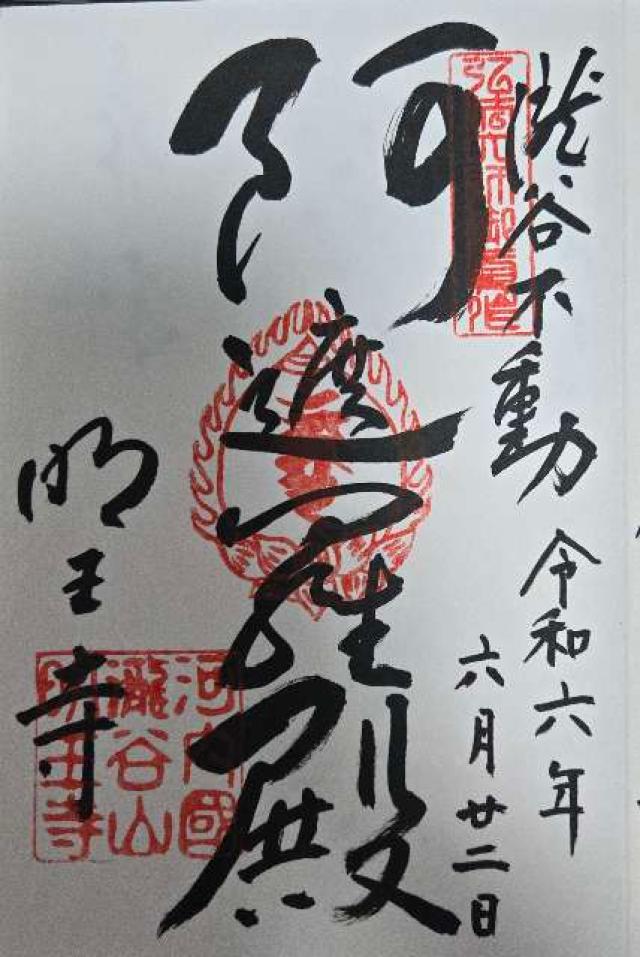 瀧谷不動
令和六年
六月廿二日
弘法大師御直作
阿遮羅殿
明王寺
河内國
瀧谷山
明王寺